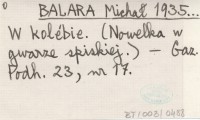 BALARA Michał 1935...
W kolébie. (Nowelka w
gwarze spiskiej.) – Gaz.
Podh. 23, nr 17.
BT/003/0488